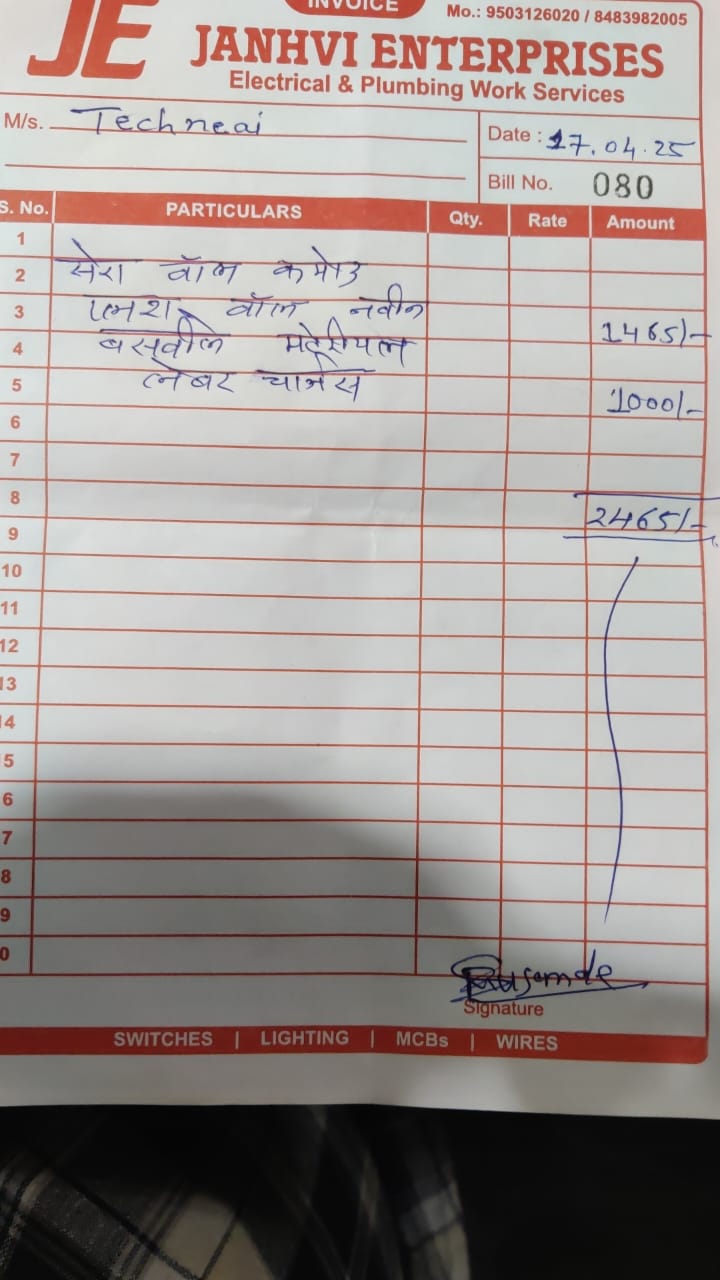 INVOICE
Mo.: 9503126020 / 8483982005
JE
JANHVI ENTERPRISES
Electrical & Plumbing Work Services
M/s. Techneai
Date : 17.04.25
Bill No. 080
S. No. PARTICULARS Qty. Rate Amount
1
2 सेरा वॉल कमोड
3 वॉल नवीन
1465/-
4 बसवीले मटेरीयल
5 लेबर चार्जेस 1000/-
6
7
8
2465/-
9
10
11
12
13
14
5
6
7
8
9
0
Signature
SWITCHES | LIGHTING | MCBs | WIRES